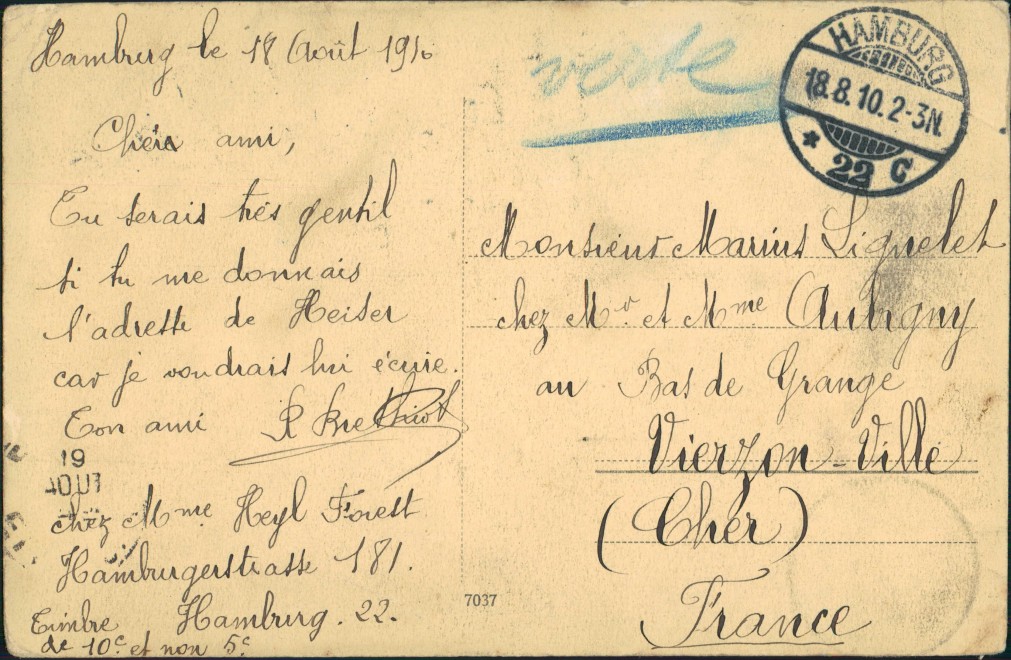 Hamburg le 18 Août 1910
Cher ami,
Tu serais très gentil
si tu me donnais
l'adresse de Heiser
car je voudrais lui écrire.
Ton ami
19
AOUT
chez Mme Heyl Forest
Hamburgerstrasse 181.
Hamburg. 22.
Timbre
de 10c et non 5c
verte
HAMBURG
18.8.10.2-3N.
* 22 C
Monsieur Marius Lignelet
chez Mr et Mme Aubigny
au Bas de Grange
Vierzon-Ville
(Cher)
France
7037